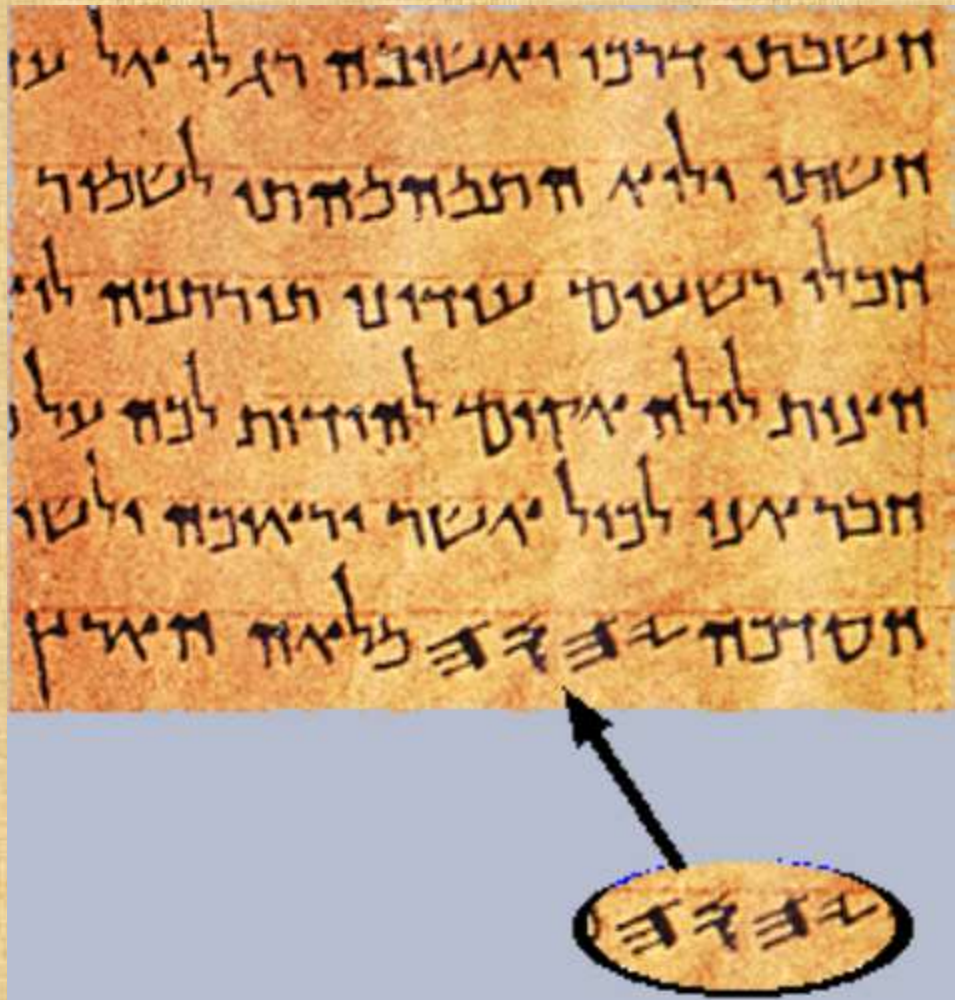 חשבתי דרכי ואשובה רגלי אל
חשתי ולוא התמהמהתי לשמור
חבלי רשעים עודוני תורתכה
חצות לילה אקום להודות לכה על
חבר אני לכול אשר יראוכה
חסדכה 𐤉𐤄𐤅𐤄 מלאה הארץ
𐤉𐤄𐤅𐤄